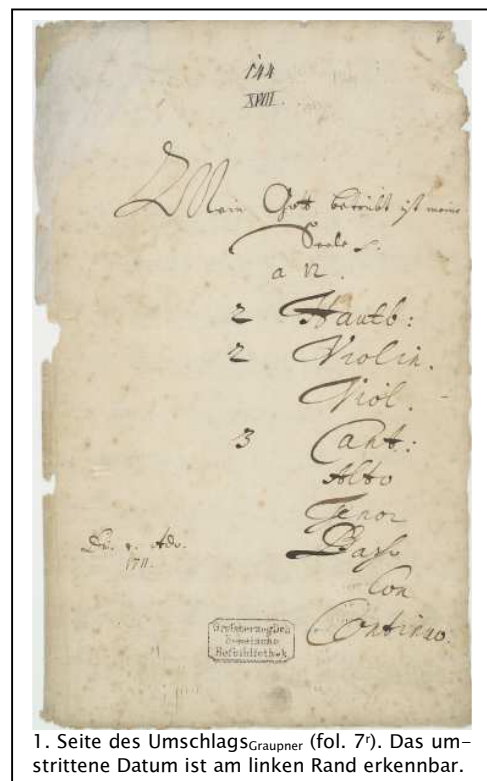 7
144
XVIII.
Mein Gott betrübt ist meine
Seele
a 12.
2 Hautb:
2 Violin.
Viol.
3 Cant:
Alto
Tenor
Basso
Con
Continuo.
Adv.
1711.
Großherzoglich
Hessische
Hofbibliothek
1. Seite des Umschlags_Graupner (fol. 7r). Das um-
strittene Datum ist am linken Rand erkennbar.